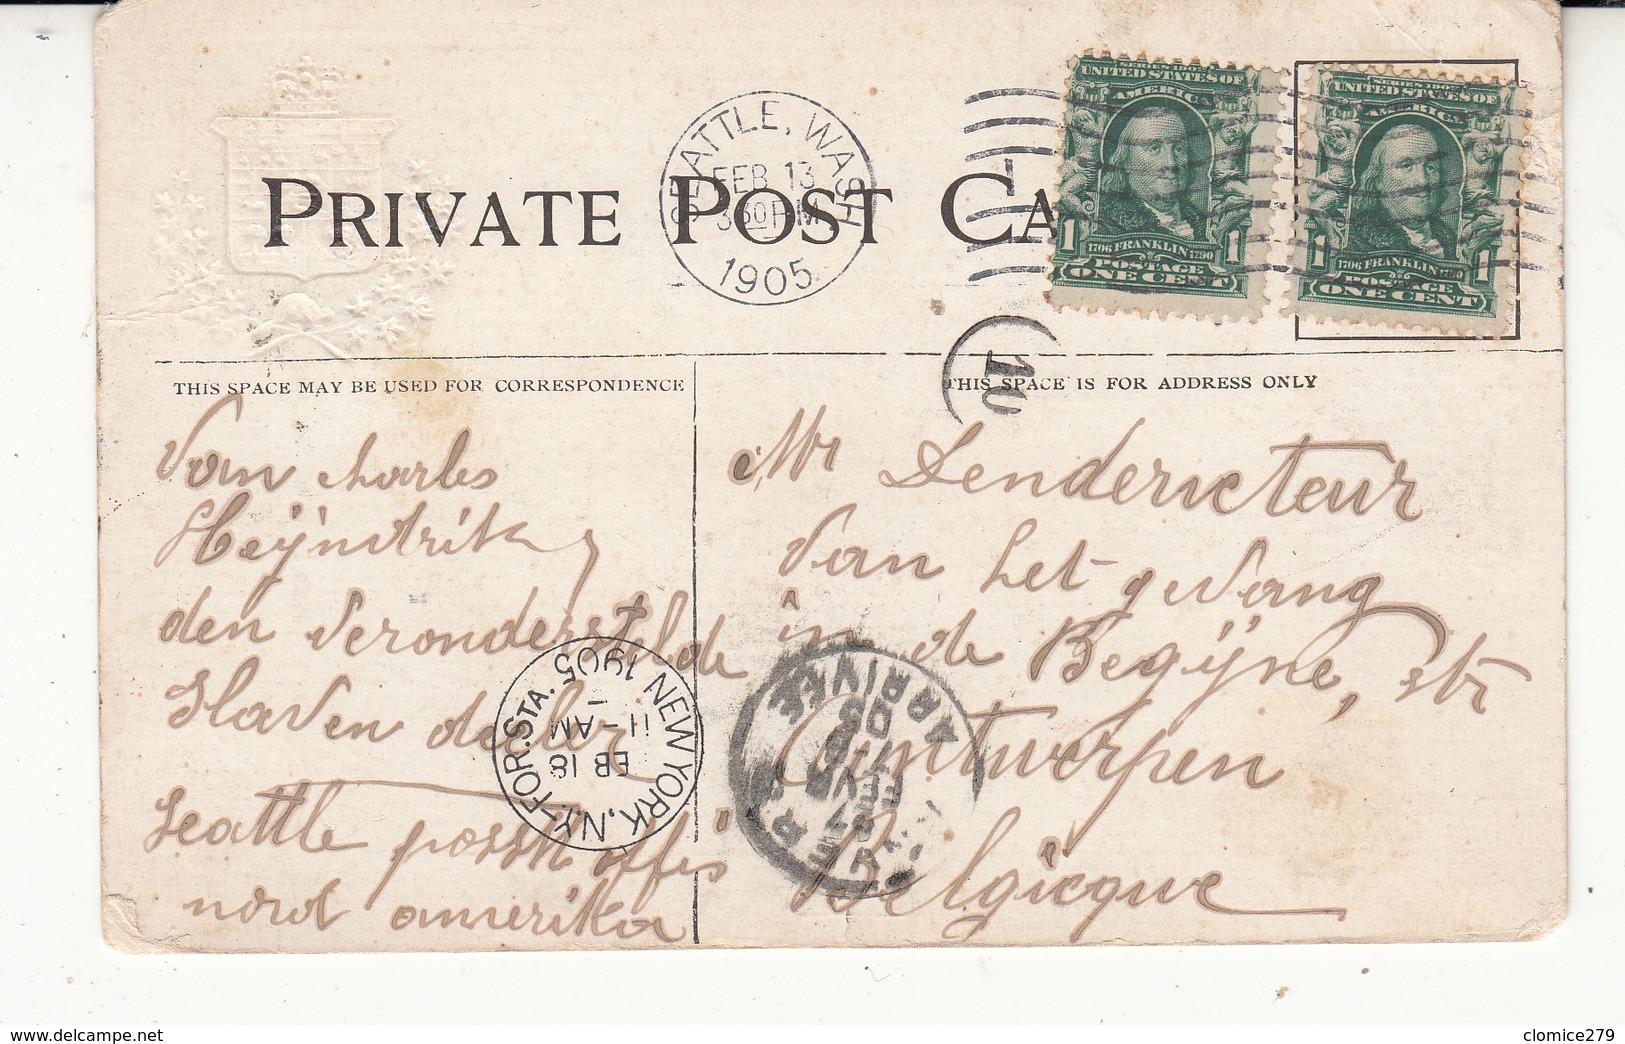 PRIVATE POST CA
SEATTLE, WASH
FEB 13
3 30 PM
1905
SERIES 1902
UNITED STATES OF
AMERICA
1 1706 FRANKLIN 1790 1
POSTAGE
ONE CENT
SERIES 1902
UNITED STATES OF
AMERICA
1 1706 FRANKLIN 1790 1
POSTAGE
ONE CENT
10
THIS SPACE MAY BE USED FOR CORRESPONDENCE
THIS SPACE IS FOR ADDRESS ONLY
Van charles
Heÿndrik
den Veronderstelde
Slaven dealer
Seattle possth offis
nord amerika
Mr Lenderecteur
Van het gevang
in de Begÿne, str
Antwerpen
Belgicque
NEW YORK, N.Y. FOR. STA.
EB 18
11-AM
1905
ARRIVEE
clomice279